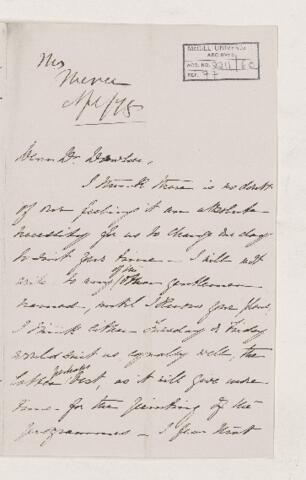 McGILL UNIVERSITY
ARCHIVES
ACC. NO. 2211
REF. 77
Mrs
Mercer
Apl/75
Dear Dr. Dawson,
I think there is no doubt
of our feeling it an absolute
necessity for us to change one day
to suit your time — I will not
write to any of the other gentlemen
named, until I know your plans.
I think either Tuesday or Friday
would suit us equally well, the
latter perhaps best, as it will give more
time for the printing of the
programmes — I fear that